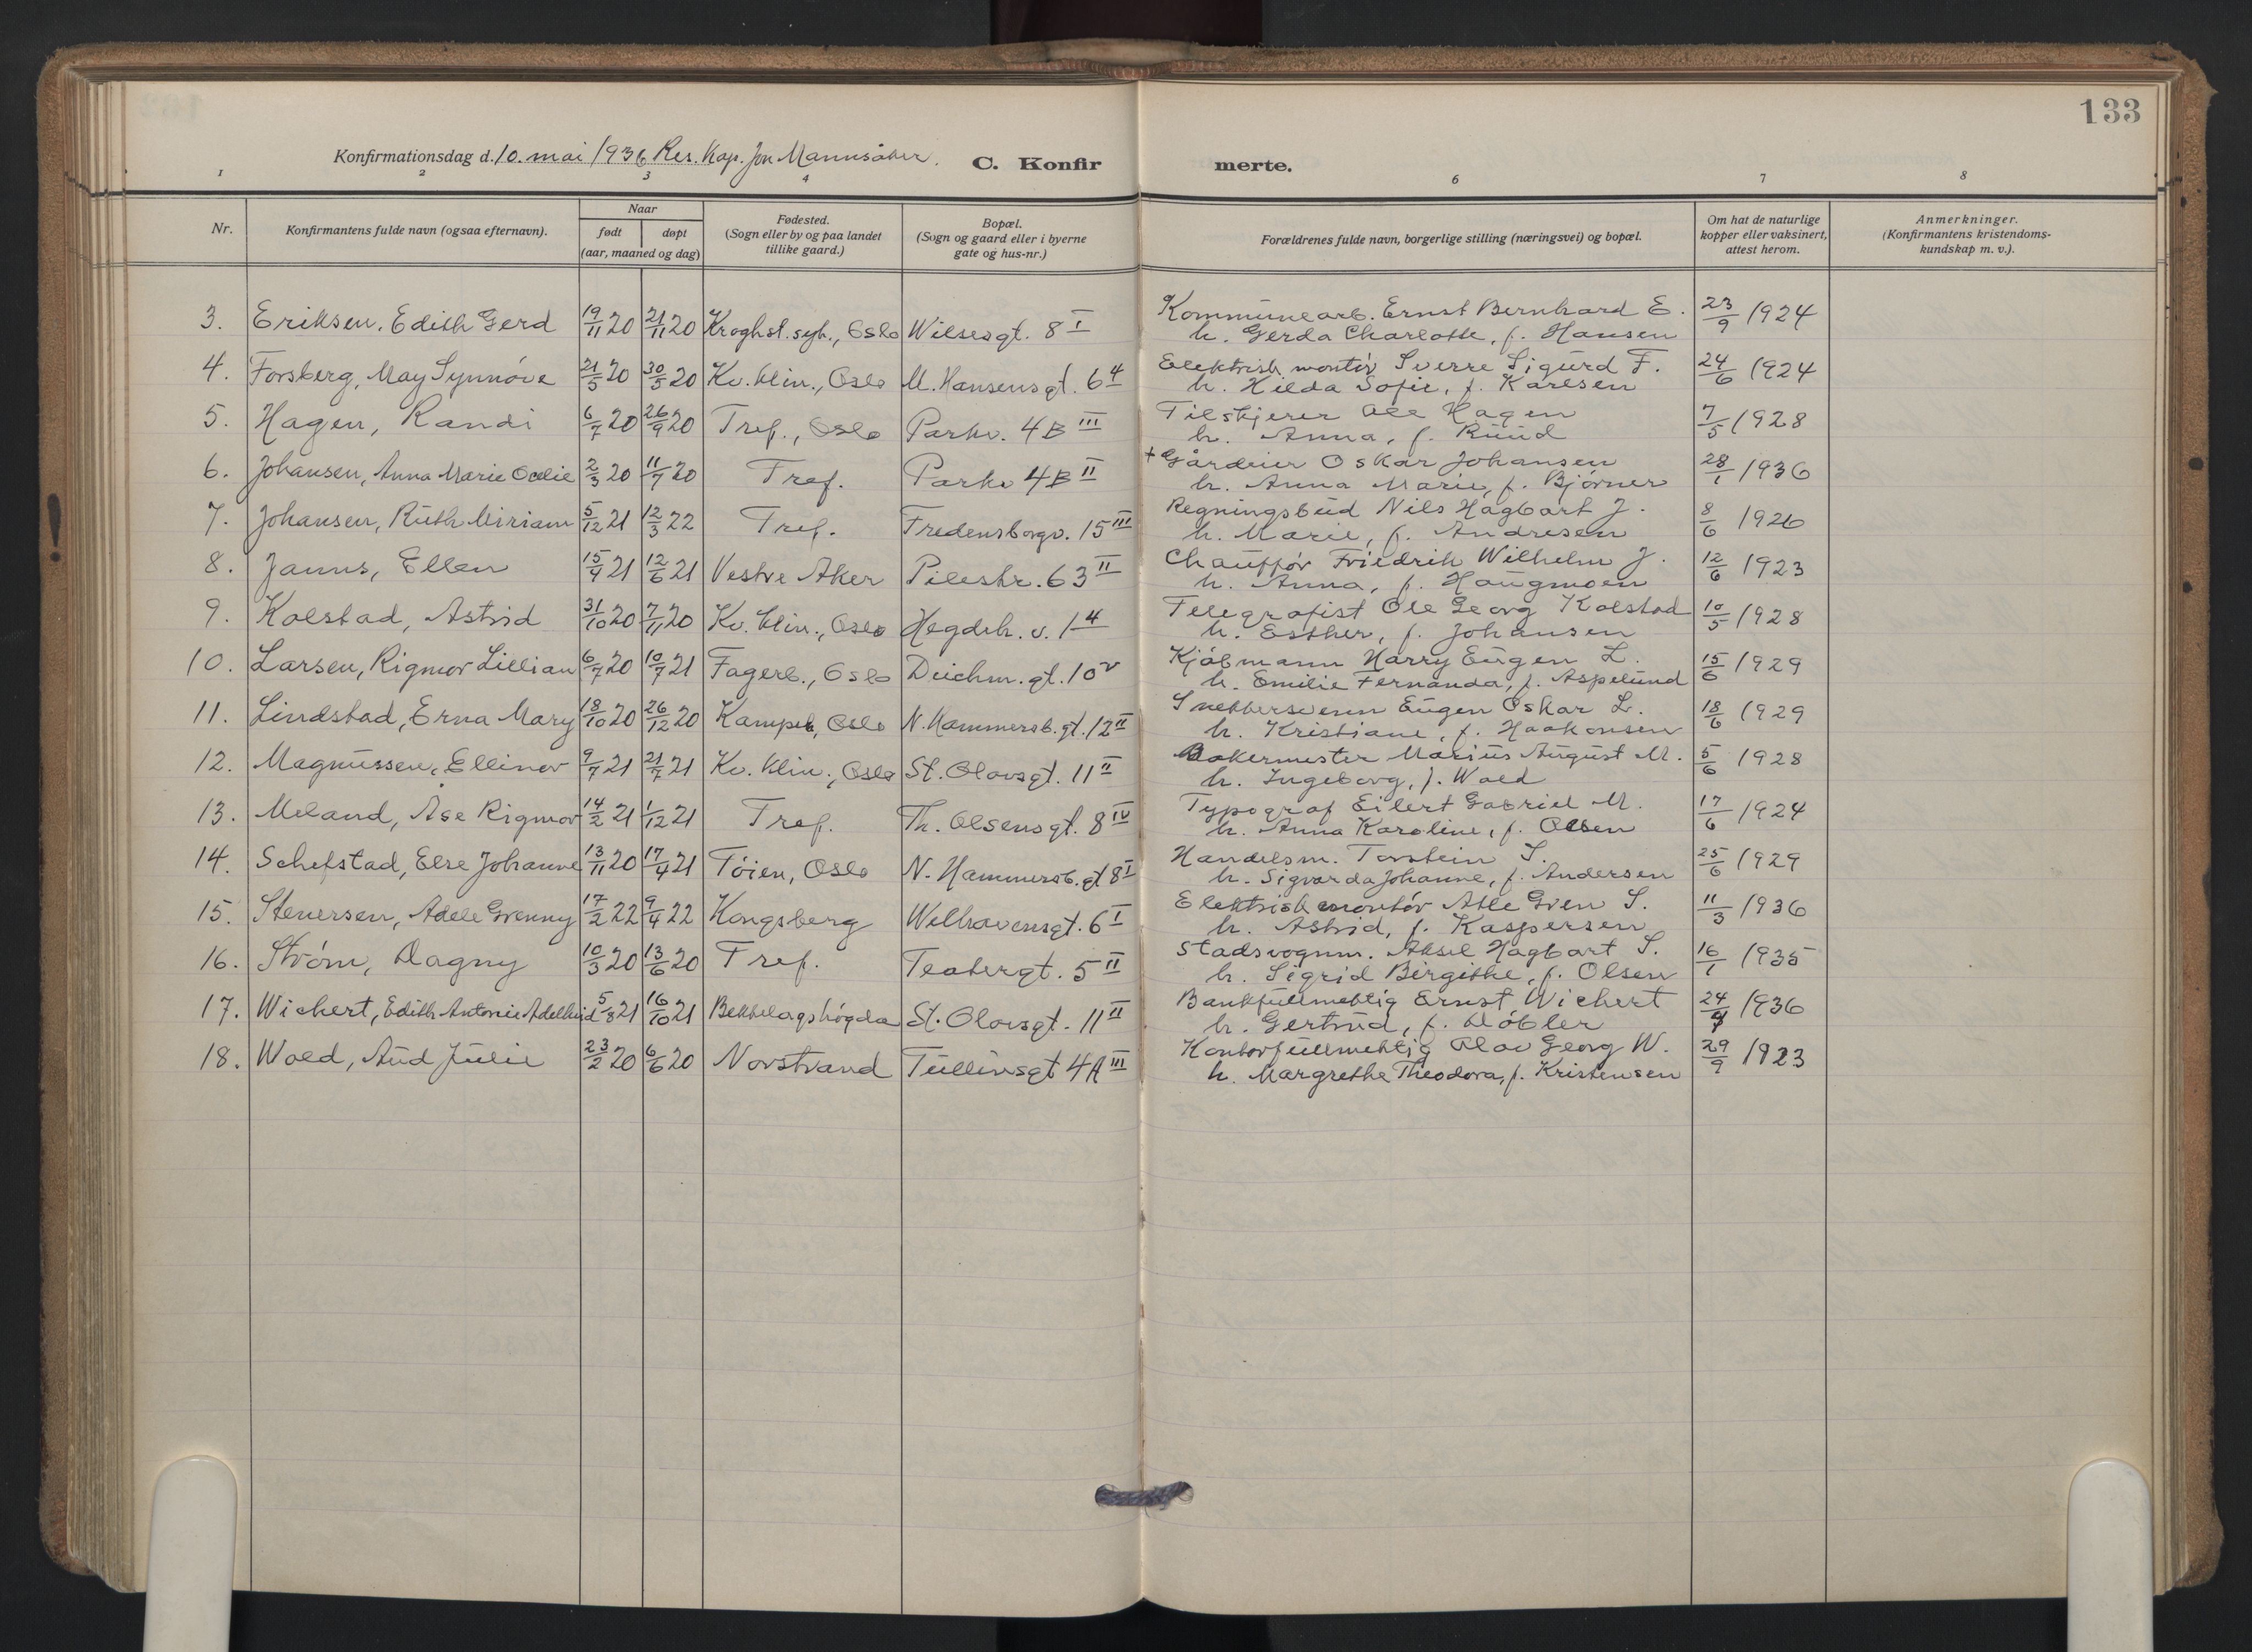 133
Konfirmationsdag d. 10. mai 1936 Res. Kap. Jon Mannsåker.
C. Konfirmerte.
1 2 3 4 6 7 8
Nr. | Konfirmantens fulde navn (ogsaa efternavn). | Naar født døpt (aar, maaned og dag) | Fødested. (Sogn eller by og paa landet tillike gaard.) | Bopæl. (Sogn og gaard eller i byerne gate og hus-nr.) | Forældrenes fulde navn, borgerlige stilling (næringsvei) og bopæl. | Om hat de naturlige kopper eller vaksinert, attest herom. | Anmerkninger. (Konfirmantens kristendoms-kundskap m. v.).
3. Eriksen, Edith Gerd 19/11 20 21/11 20 Kroghst. syh., Oslo Wilsesgt. 8 I Kommunearb. Ernst Bernhard E. 23/9 1924
h. Gerda Charlotte, f. Hansen
4. Forsberg, May Synnöve 21/5 20 30/5 20 Kv. klin., Oslo M. Hansensgt. 6 4 Elektrisk montör Sverre Sigurd F. 24/6 1924
h. Hilda Sofie, f. Karlsen
5. Hagen, Randi 6/7 20 26/9 20 Tref., Oslo Parkv. 4B III Tilskjerer Ole Hagen 7/5 1928
h. Anna, f. Ruud
6. Johansen, Anna Marie Ocelie 2/3 20 11/7 20 Tref. Parkv 4B II + Gårdeier Oskar Johansen 28/1 1936
h. Anna Marie, f. Björner
7. Johansen, Ruth Miriam 5/12 21 12/3 22 Tref. Fredensborgv. 15 III Regningsbud Nils Hagbart J. 8/6 1926
h. Marie, f. Andresen
8. Janus, Ellen 15/4 21 12/6 21 Vestre Aker Pilestr. 63 II Chaufför Friedrik Wilhelm J. 12/6 1923
h. Anna, f. Haugmoen
9. Kolstad, Astrid 31/10 20 7/11 20 Kv. klin., Oslo Hegdeh. v. 1 4 Telegrafist Ole Georg Kolstad 10/5 1928
h. Esther, f. Johansen
10. Larsen, Rigmor Lillian 6/7 20 10/7 21 Fagerb., Oslo Deichm. gt. 10 V Kjöbmann Harry Eugen L. 15/6 1929
h. Emilie Fernanda, f. Aspelund
11. Lindstad, Erna Mary 18/10 20 26/12 20 Kampen, Oslo N. Hammersb. gt. 12 II Snekkersvenn Eugen Oskar L. 18/6 1929
h. Kristiane, f. Haakonsen
12. Magnussen, Ellinor 9/7 21 21/7 21 Kv. klin., Oslo St. Olovsgt. 11 II Bakermester Marius August M. 5/6 1928
h. Ingeborg, f. Wold
13. Meland, Åse Rigmor 14/2 21 1/12 21 Tref. Th. Olsensgt. 8 IV Typograf Eilert Gabriel M. 17/6 1924
h. Anna Karoline, f. Olsen
14. Schefstad, Else Johanne 13/11 20 17/4 21 Töien, Oslo N. Hammersb. gt 8 I Handelsm. Torstein S. 25/6 1929
h. Sigvarda Johanne, f. Andersen
15. Stenersen, Adele Grenny 17/2 22 9/4 22 Kongsberg Welhavensgt. 6 I Elektrisk montör Atle Gven S. 11/3 1936
h. Astrid, f. Kaspersen
16. Ström, Dagny 10/3 20 13/6 20 Tref. Teatergt. 5 II Stadsvognm. Aksel Hagbart S. 16/1 1935
h. Sigrid Birgithe, f. Olsen
17. Wichert, Edith Antonie Adelheid 5/8 21 16/10 21 Bekkelagshögda St. Olovsgt. 11 II Bankfullmektig Ernst Wichert 24/4 1936
h. Gertrud, f. Döbler
18. Wold, Aud Julie 23/2 20 6/6 20 Norstrand Tullinsgt 4A III Kontorfullmektig Olav Georg W. 29/9 1923
h. Margrethe Theodora, f. Kristensen